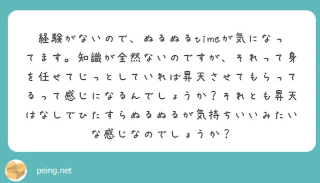 経験がないので、ぬるぬるtimeが気になっ
てます。知識が全然ないのですが、それって身
を任せてじっとしていれば昇天させてもらって
るって感じになるんでしょうか？それとも昇天
はなしでひたすらぬるぬるが気持ちいいみたい
な感じなのでしょうか？
peing.net